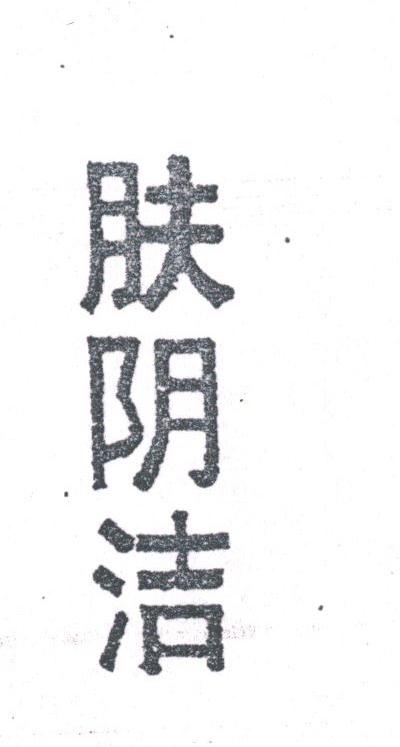 肤阴洁